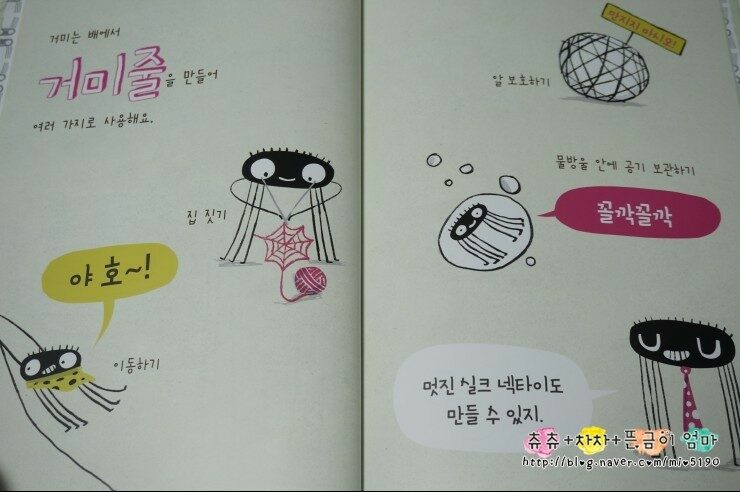 거미는 배에서
거미줄을 만들어
여러 가지로 사용해요.
집 짓기
야호~!
이동하기
만지지 마시오!
알 보호하기
물방울 안에 공기 보관하기
꼴깍꼴깍
멋진 실크 넥타이도
만들 수 있지.
츄츄+차차+뜬금이 엄마
http://blog.naver.com/mio5190